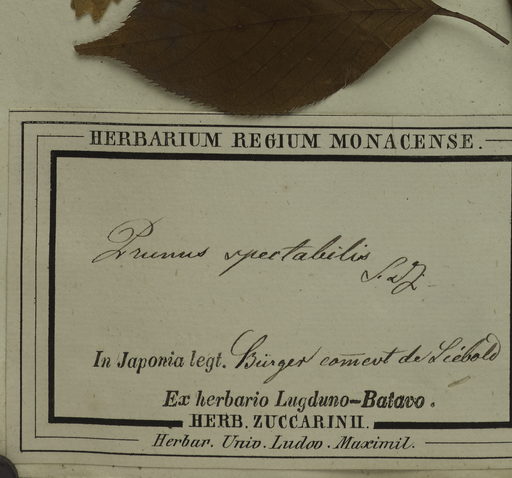 HERBARIUM REGIUM MONACENSE.
Prunus spectabilis
S. & Z.
In Japonia legt. Bürger com̄ct de Siebold
Ex herbario Lugduno-Batavo.
HERB. ZUCCARINII.
Herbar. Univ. Ludov. Maximil.